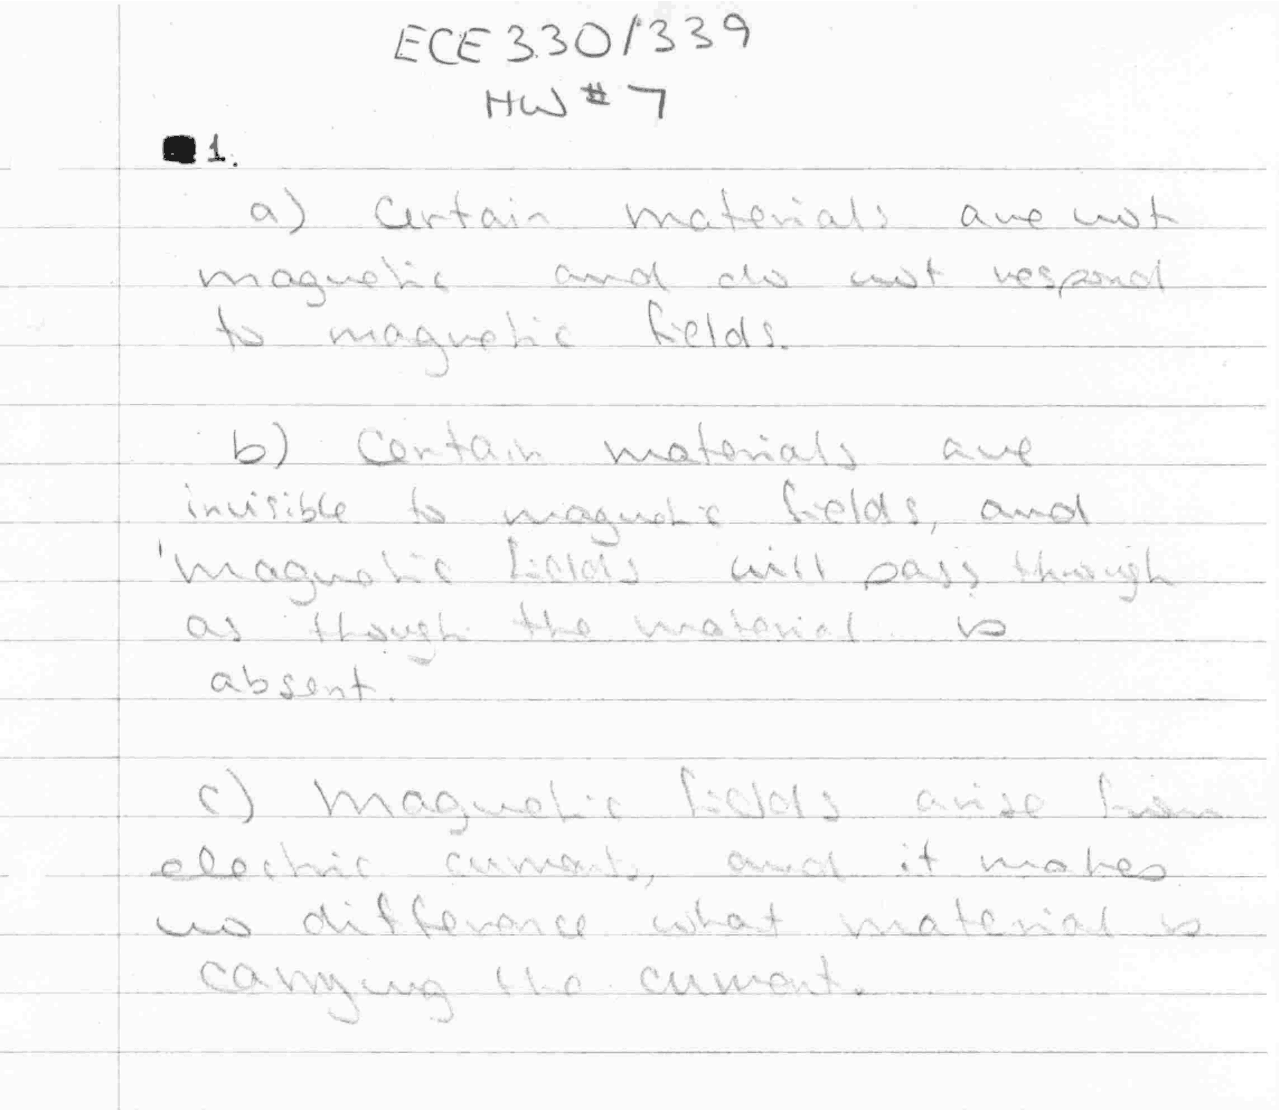 ECE 330/339
HW #7
1.
a) Certain materials are not
magnetic and do not respond
to magnetic fields.
b) Certain materials are
invisible to magnetic fields, and
magnetic fields will pass through
as though the material is
absent.
c) Magnetic fields arise from
electric currents, and it makes
no difference what material is
carrying the current.